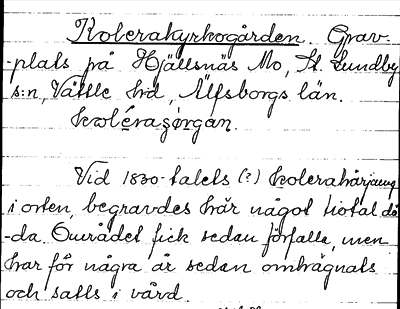 Kolerakyrkogården. Grav-
-plats på Hjällsnäs Mo, St. Lundby
s:n, Vättle hd, Älfsborgs län.
kωlérazǫrgan.
Vid 1830-talets (?) kolerahärjning
i orten, begravdes här något tiotal dö
-da. Området fick sedan förfalla, men
har för några år sedan omhägnats
och satts i vård.